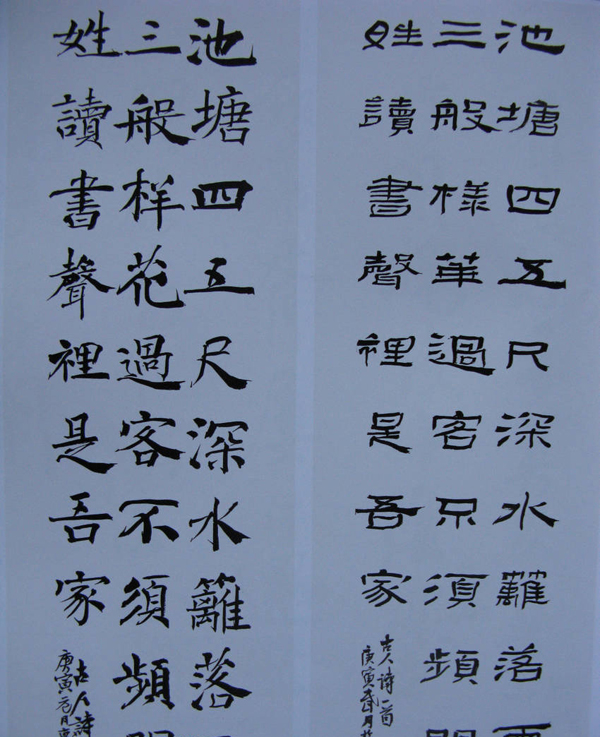 池塘四五尺深水蘺落
三般樣華過客不須頻
姓讀書聲裡是吾家
古人詩一首
庚寅
池塘四五尺深水籬落
三般样花過客不須頻
姓讀書聲裡是吾家
古人詩
庚寅元月